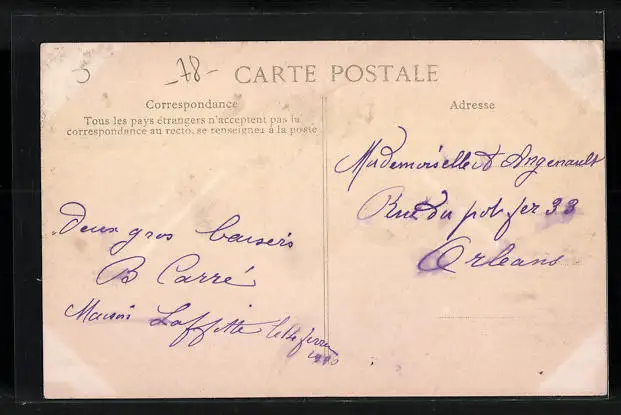 -78-
CARTE POSTALE
Correspondance
Tous les pays étrangers n'acceptent pas la
correspondance au recto, se renseigner à la poste
Deux gros baisers
B Carré
Maison Laffitte le 14
Adresse
Mademoiselle Angenault
Rue du pot fer 33
Orleans